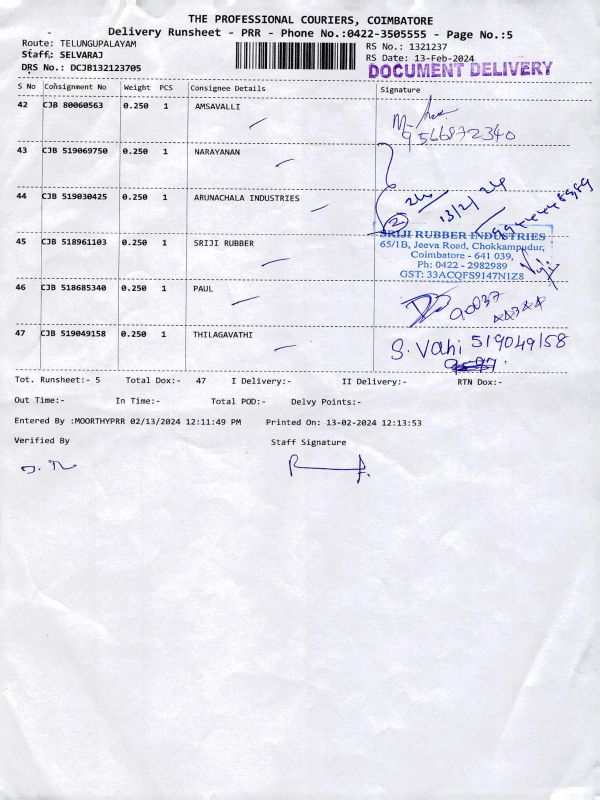 THE PROFESSIONAL COURIERS, COIMBATORE
Delivery Runsheet - PRR - Phone No.:0422-3505555 - Page No.:5
Route: TELUNGUPALAYAM RS No.: 1321237
Staff: SELVARAJ RS Date: 13-Feb-2024
DRS No.: DCJB132123705 DOCUMENT DELIVERY
S No Consignment No Weight PCS Consignee Details Signature
42 CJB 80060563 0.250 1 AMSAVALLI
9566872340
43 CJB 519069750 0.250 1 NARAYANAN
44 CJB 519030425 0.250 1 ARUNACHALA INDUSTRIES
13/2/24
2
45 CJB 518961103 0.250 1 SRIJI RUBBER
SRIJI RUBBER INDUSTRIES
65/1B, Jeeva Road, Chokkampudur,
Coimbatore - 641 039,
Ph: 0422 - 2982989
GST: 33ACQFS9147N1Z8
46 CJB 518685340 0.250 1 PAUL
47 CJB 519049158 0.250 1 THILAGAVATHI
S. Vahi 519049158
Tot. Runsheet:- 5 Total Dox:- 47 I Delivery:- II Delivery:- RTN Dox:-
Out Time:- In Time:- Total POD:- Delvy Points:-
Entered By :MOORTHYPRR 02/13/2024 12:11:49 PM Printed On: 13-02-2024 12:13:53
Verified By Staff Signature